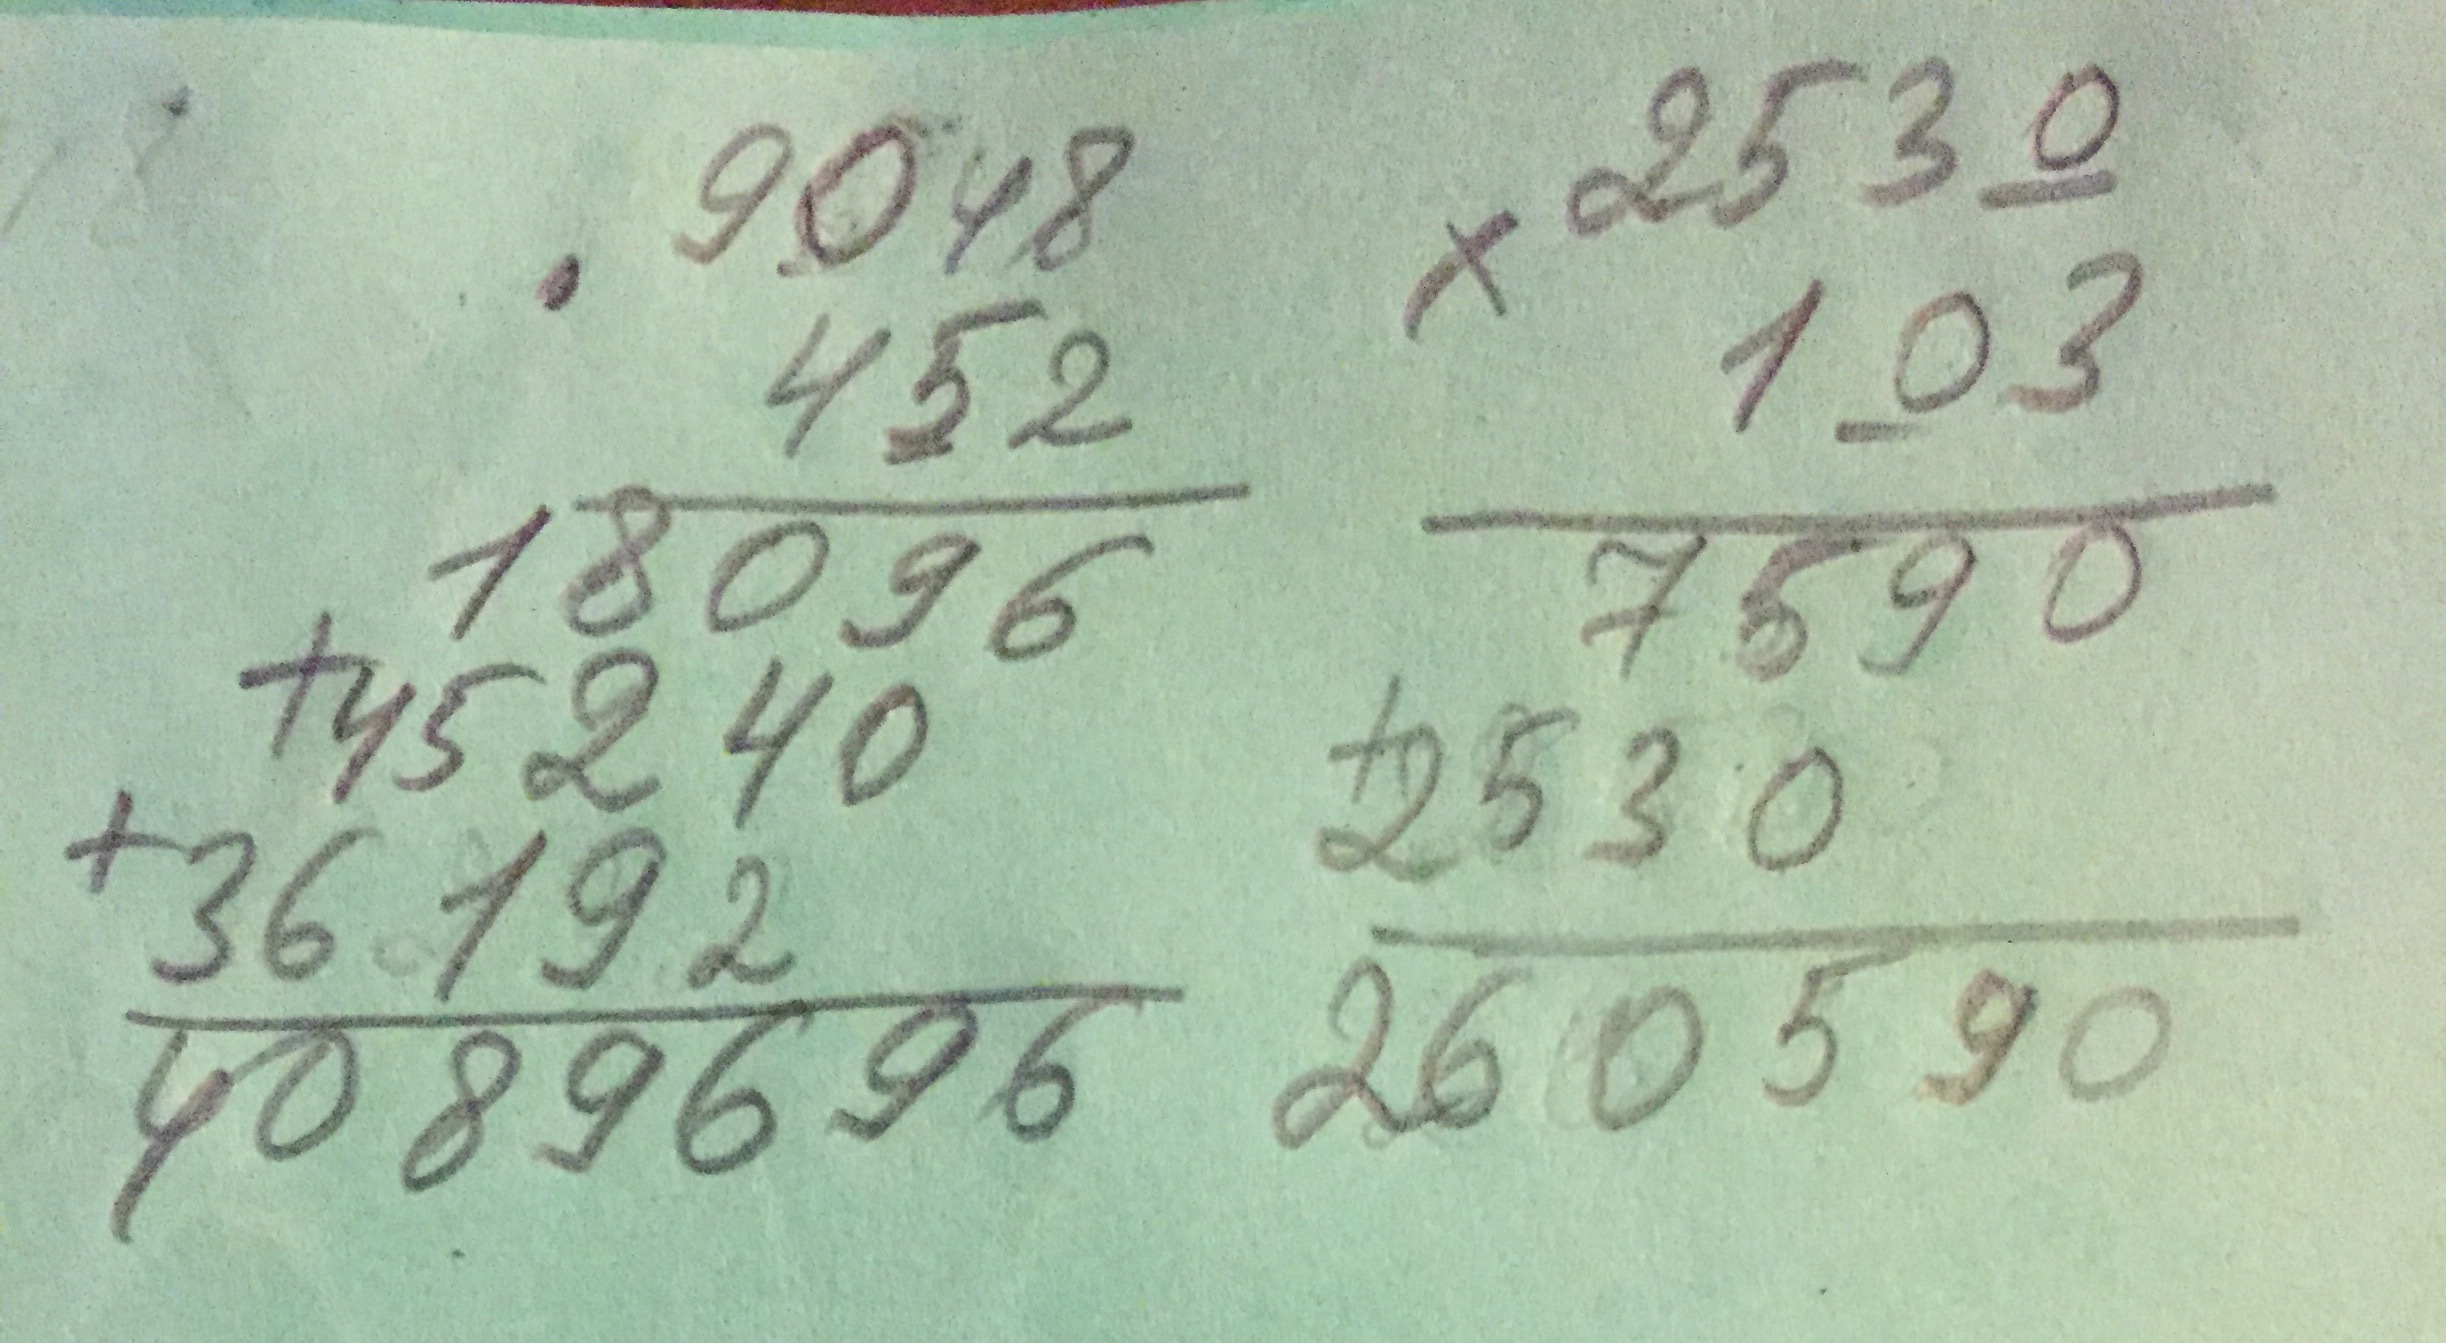 9048
· 452
18096
+45240
+36192
4089696
2530
× 103
7590
+2530
260590